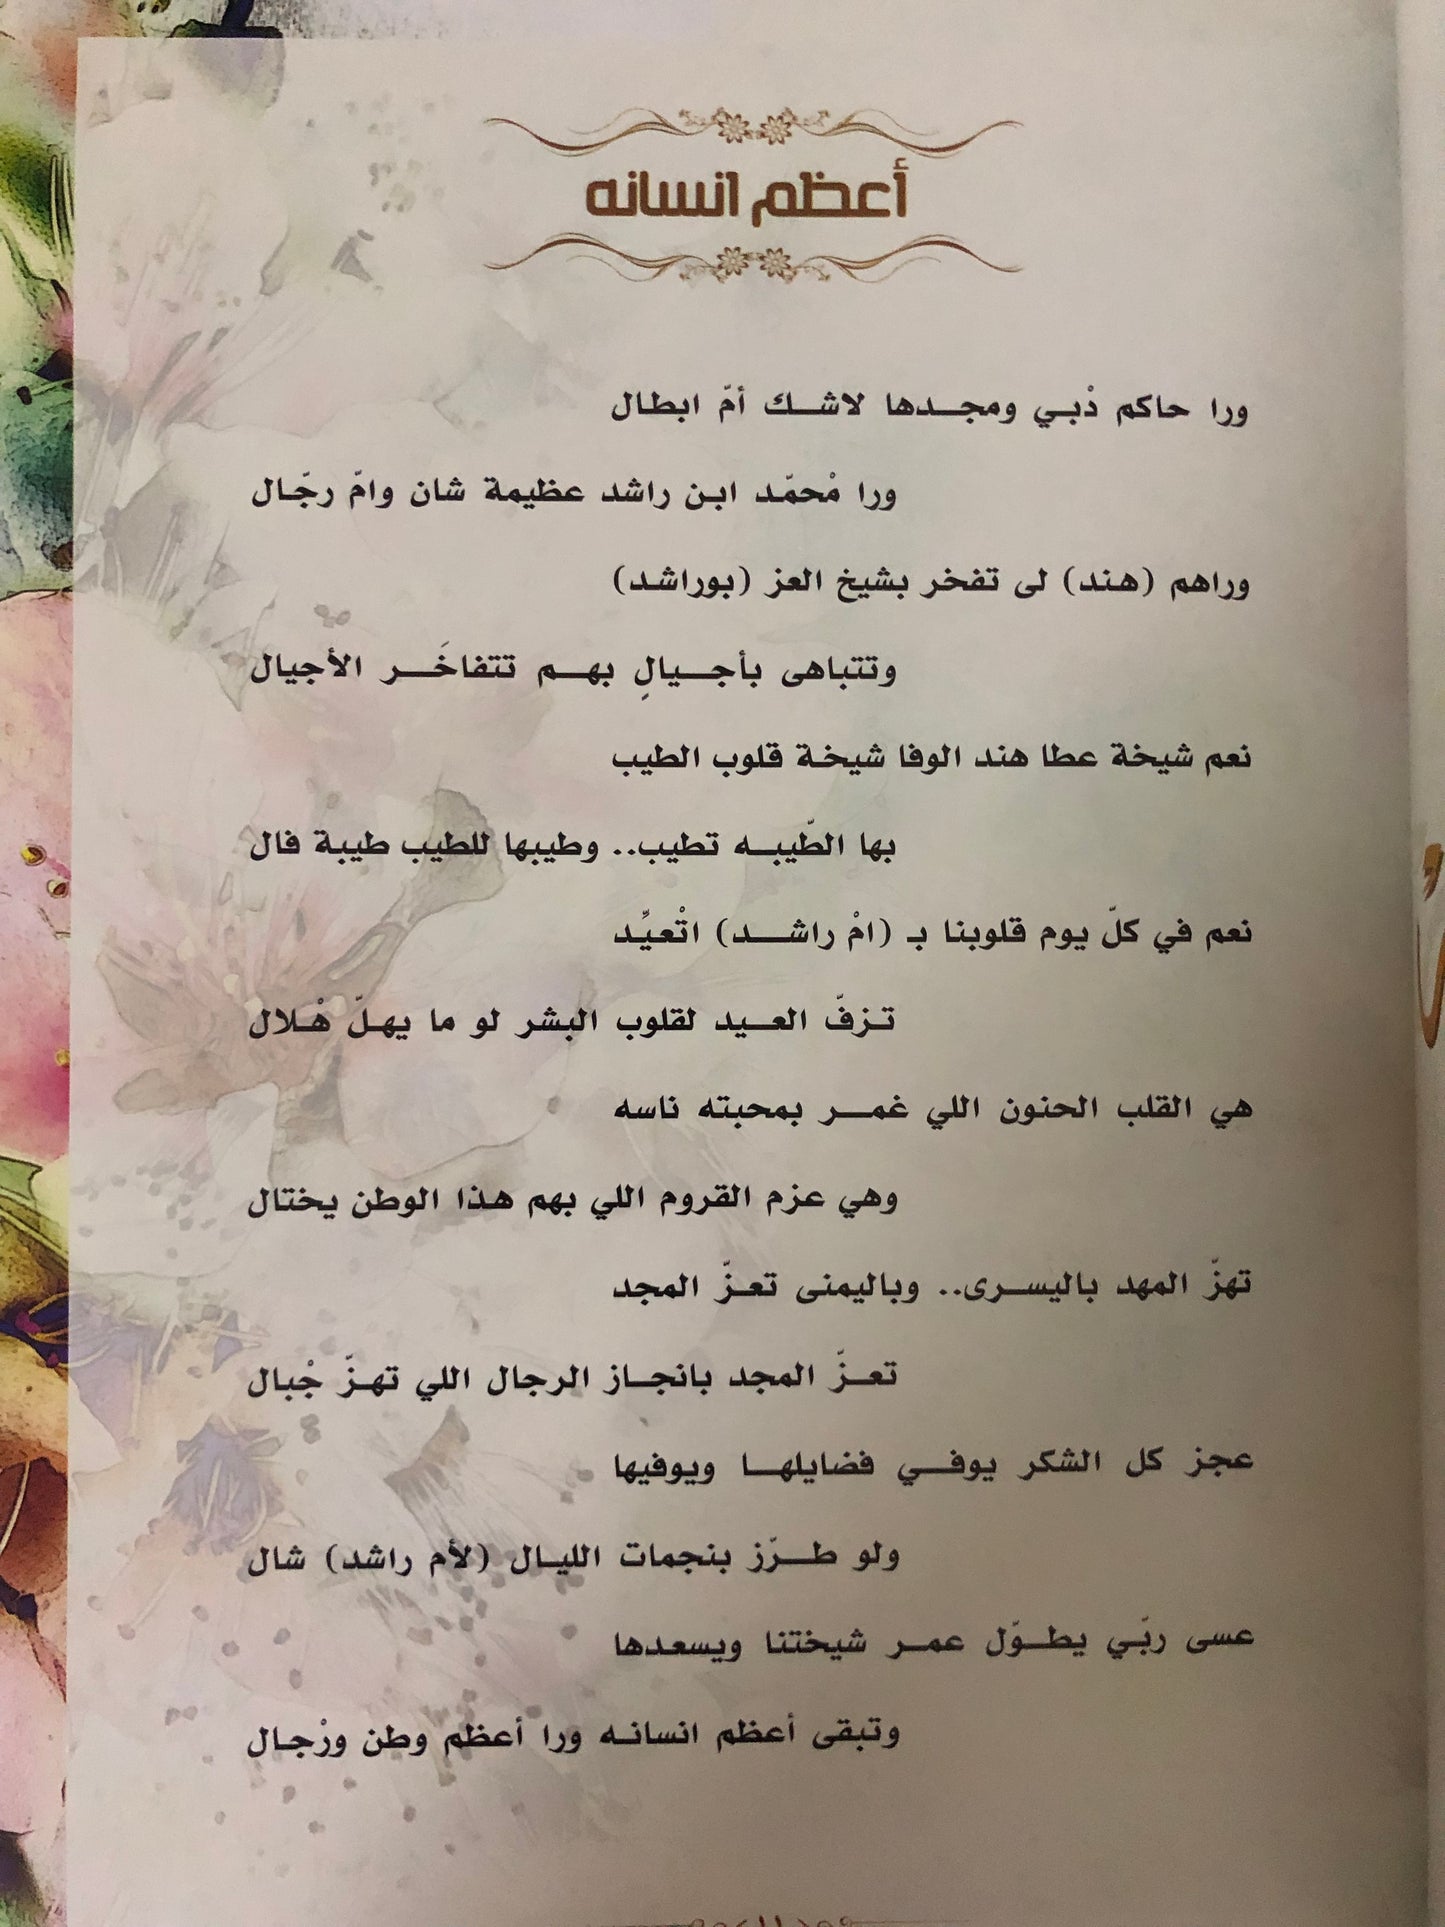 أعظم انسانه
ورا حاكم دْبـي ومجـــدها لاشـــك أمّ ابطـال
ورا مْحمّـد ابـن راشد عظيمة شان وامّ رجّـال
وراهم (هـند) لى تـفخر بـشيخ العـز (بـوراشـد)
وتتباهى بـأجـــيالِ بهـــم تـتفاخَـــر الأجيال
نعم شيخة عطا هند الوفا شيخـة قلوب الطيب
بها الطّيبـــه تطيب.. وطيبها للطيب طيبة فال
نعم في كلّ يوم قلوبنا بـ (امْ راشـــــد) اتْعيِّـد
تـزفّ العـــيد لقلوب البشر لو ما يهـلّ هْـلال
هي القلب الحنون اللي غمـــر بمحبته ناسه
وهي عزم القروم اللي بهم هـذا الوطن يختال
تهزّ المهد باليســـرى.. وباليمنى تعـزّ المجد
تعـــزّ المجد بانجــاز الرجال اللي تهـزّ جْبال
عجز كل الشكر يوفـــي فضايلهـــا ويوفيها
ولو طـــرّز بنجمات الليـال (لأم راشد) شال
عسى ربّـي يطـــوّل عمـــر شيختنا ويسعدها
وتبقى أعظم انسانـه ورا أعظم وطن ورْجـال